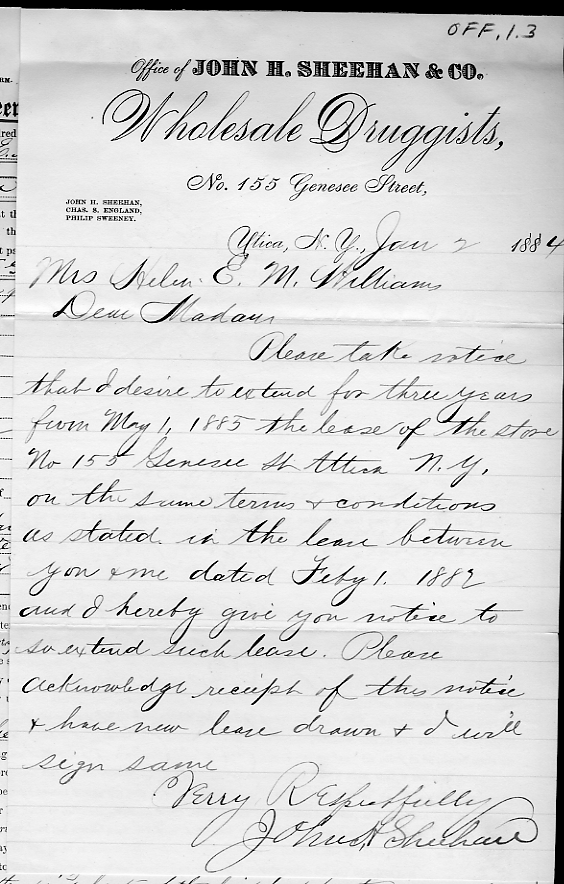 OFF, 1.3
Office of JOHN H. SHEEHAN & CO.
Wholesale Druggists,
No. 155 Genesee Street,
JOHN H. SHEEHAN,
CHAS. S. ENGLAND,
PHILIP SWEENEY.
Utica, N. Y., Jan 2 1884
Mrs Helen E. M. Williams
Dear Madam
Please take notice
that I desire to extend for three years
from May 1, 1885 the lease of the store
No 155 Genesee St Utica N.Y.
on the same terms & conditions
as stated in the lease between
you & me dated Feby 1. 1882
and I hereby give you notice to
so extend such lease. Please
acknowledge receipt of this notice
& have new lease drawn & I will
sign same
Verry Respectfully
John H Sheehan